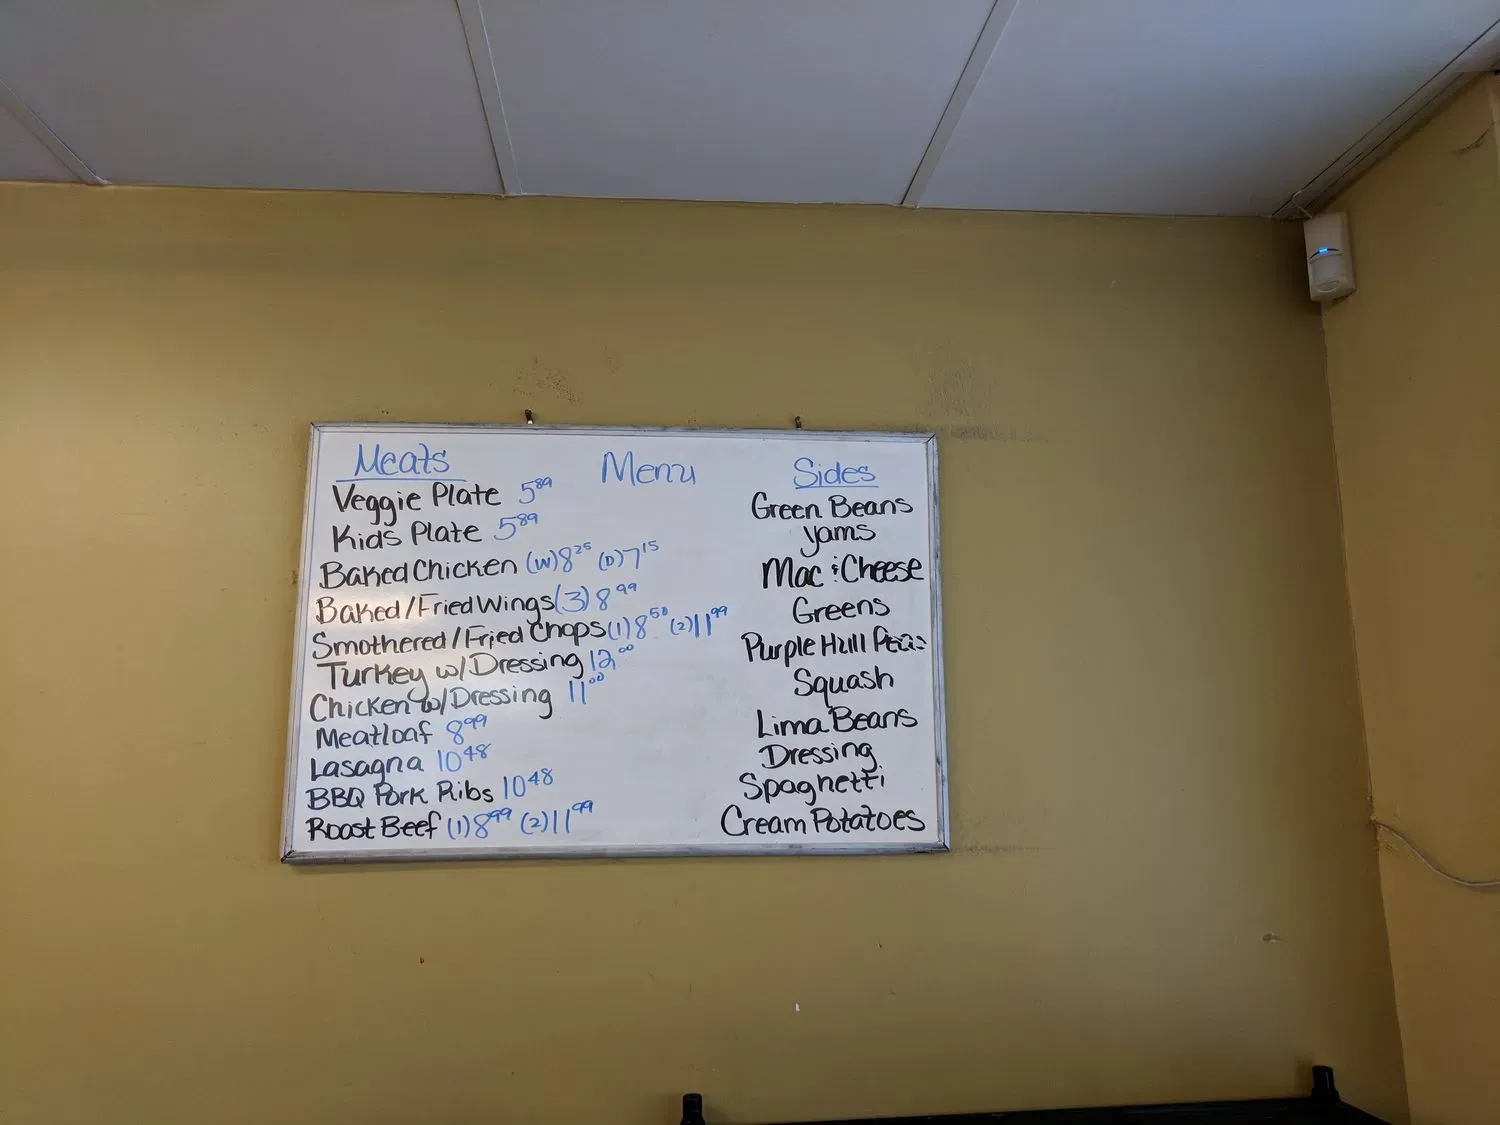 Menu
Meats
Veggie Plate 5.89
Kids Plate 5.89
Baked Chicken (W) 8.25 (D) 7.15
Baked/Fried Wings (3) 8.99
Smothered/Fried Chops (1) 8.50 (2) 11.99
Turkey w/Dressing 12.00
Chicken w/Dressing 11.00
Meatloaf 8.99
Lasagna 10.48
BBQ Pork Ribs 10.48
Roast Beef (1) 8.99 (2) 11.99
Sides
Green Beans
Yams
Mac & Cheese
Greens
Purple Hull Peas
Squash
Lima Beans
Dressing
Spaghetti
Cream Potatoes